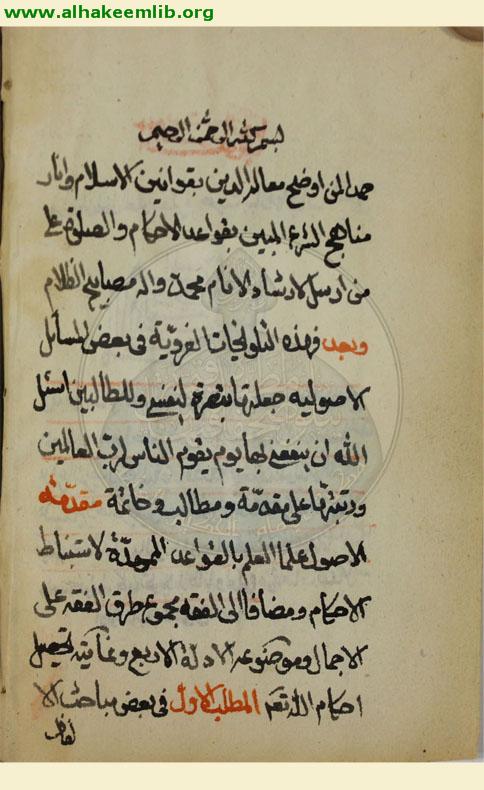 www.alhakeemlib.org
بسم الله الرحمن الرحيم
حمدا لمن اوضح معالم الدين بقوانين الاسلام وانار
مناهج الشرع المبين بقواعد الاحكام والصلوة على
من ارسل لارشاد الانام محمد واله مصابيح الظلام
وبعد فهذه التلويحات الغروية في بعض المسائل
الاصوليه جعلتها تبصرة لنفسي وللطالبين اسئل
الله ان ينفعني بها يوم يقوم الناس لرب العالمين
ورتبتها على مقدمة ومطالب وخاتمة مقدمه
الاصول علما العلم بالقواعد الممهدة لاستنباط
الاحكام ومضافا الى الفقه مجموع طرق الفقه على
الاجمال وموضوعه الادلة الاربع وغايته تحصيل
احكام الله تعم المطلب الاول في بعض مباحث الا
لفاظ